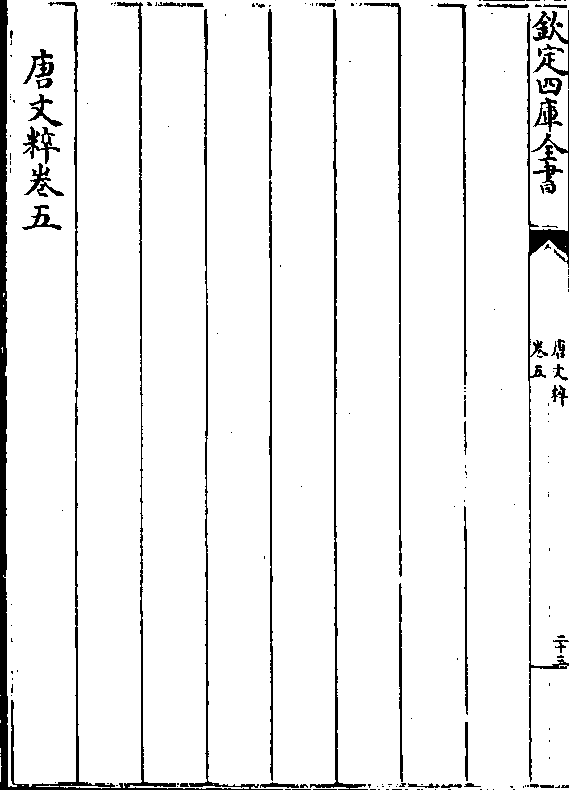 欽定四庫全書
唐文粹
卷五
二十三
唐文粹卷五